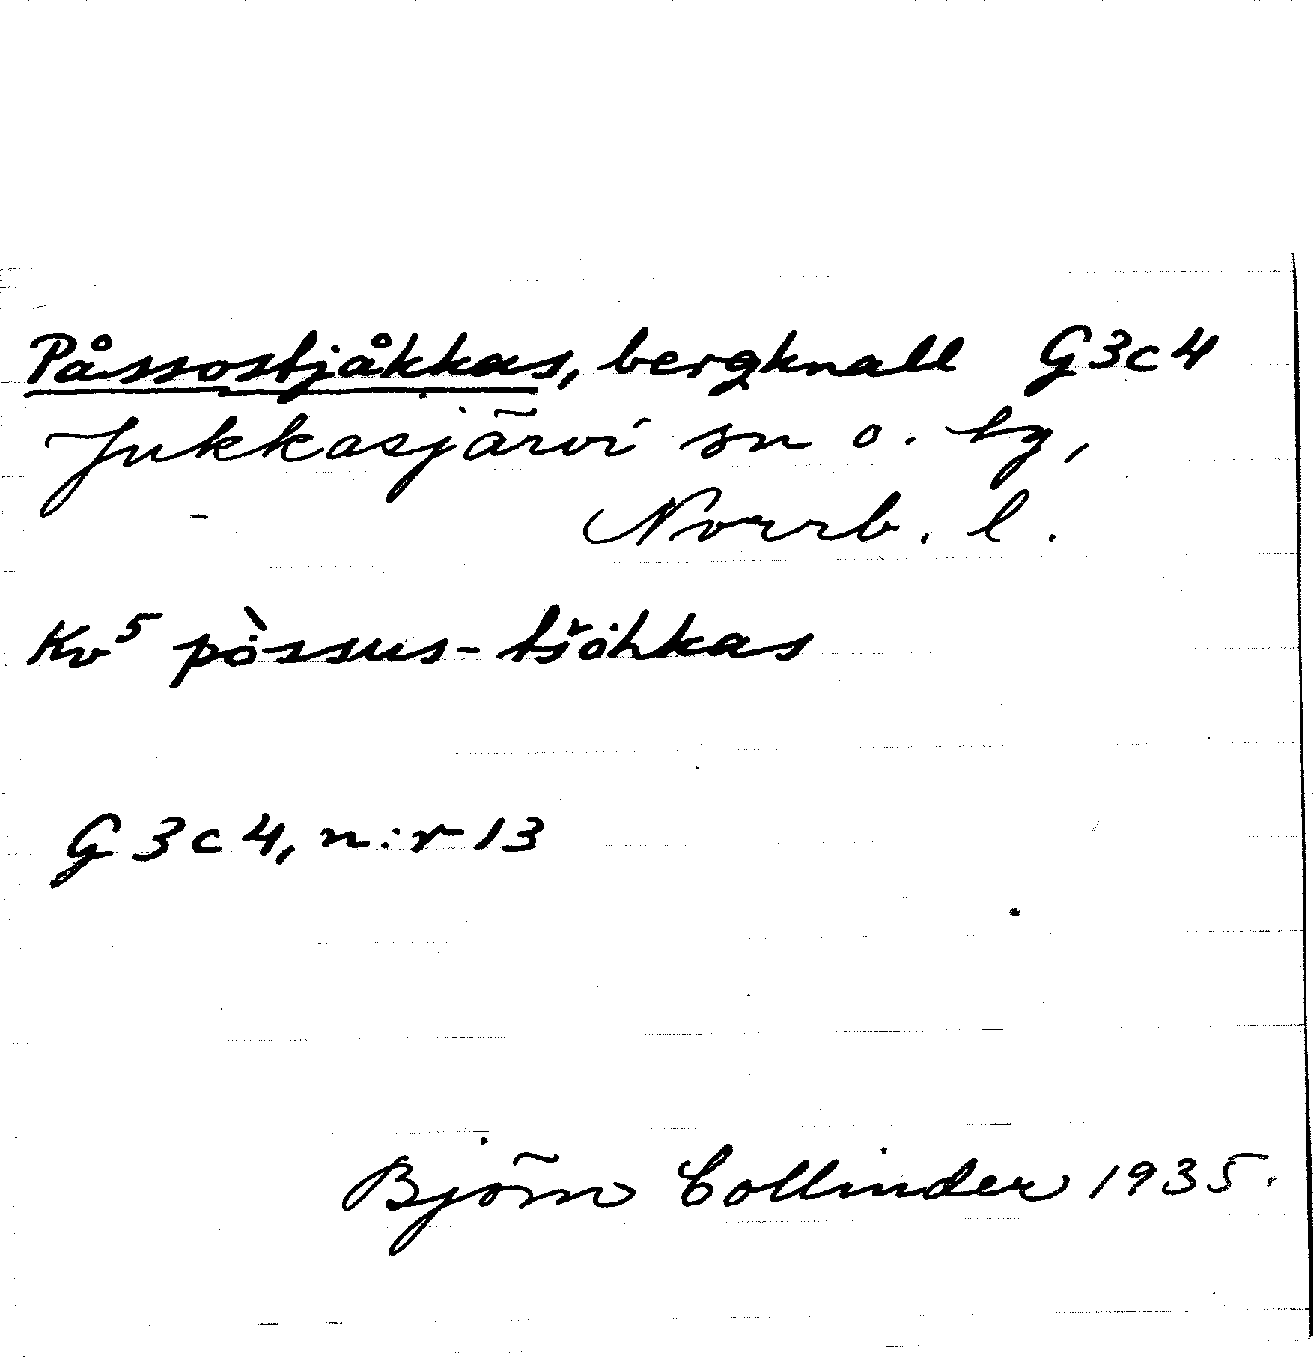 Påssostjåkkas, bergknall G3c4
Jukkasjärvi sn o. tg,
Norrb. l.
Kv⁵ pò̇ssus-tšȯhkas
G3c4, n:r 13
Björn Collinder 1935.